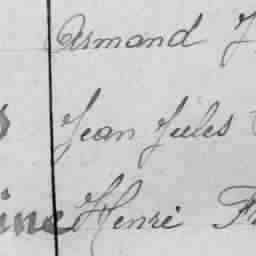 Armand J
Jean Jules
ine Henri Fr